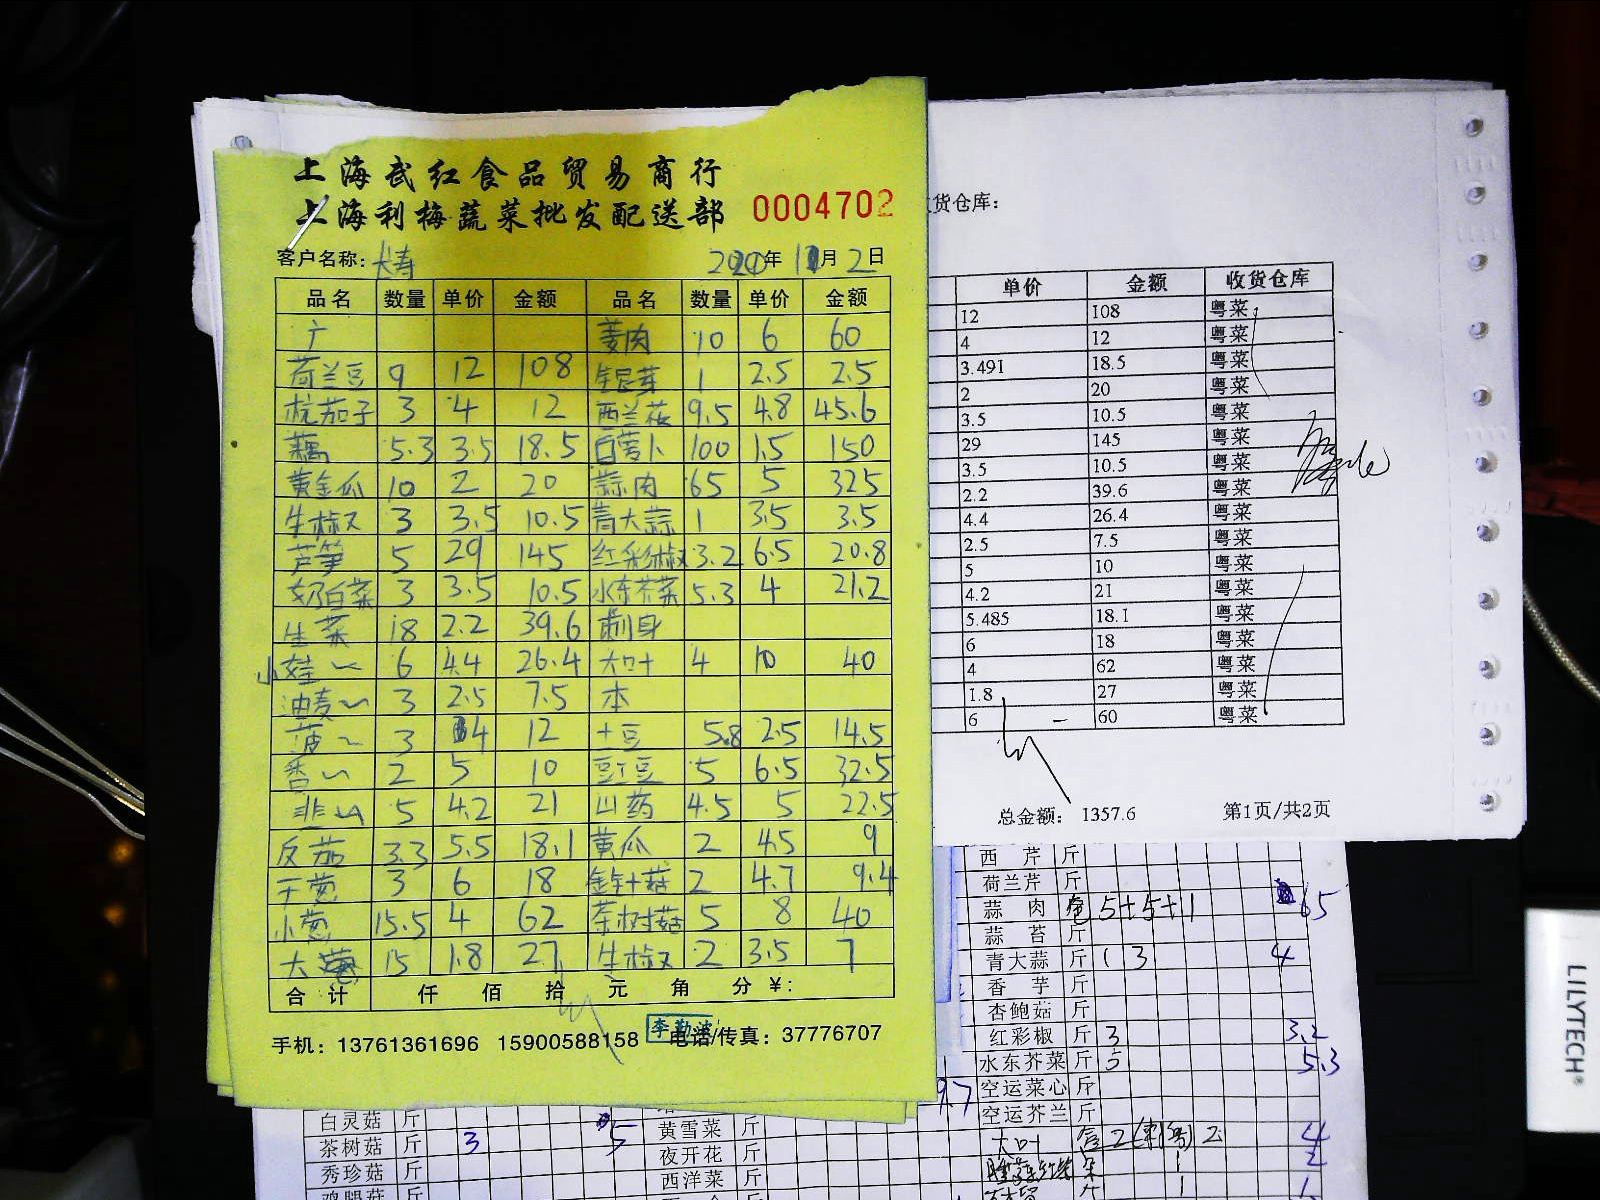 上海武红食品贸易商行
上海利梅蔬菜批发配送部 0004702
客户名称: 大寿 2020年 11月 2日
品名 数量 单价 金额 品名 数量 单价 金额
广 姜肉 10 6 60
荷兰豆 9 12 108 银芽 1 2.5 2.5
杭茄子 3 4 12 西兰花 9.5 4.8 45.6
藕 5.3 3.5 18.5 白萝卜 100 1.5 150
黄金瓜 10 2 20 蒜肉 65 5 325
牛椒 3 3.5 10.5 青大蒜 1 3.5 3.5
芦笋 5 29 145 红彩椒 3.2 6.5 20.8
奶白菜 3 3.5 10.5 水东芥菜 5.3 4 21.2
生菜 18 2.2 39.6 刺身
小娃~ 6 4.4 26.4 大叶 4 10 40
油麦~ 3 2.5 7.5 本
菠~ 3 4 12 土豆 5.8 2.5 14.5
香~ 2 5 10 豇豆 5 6.5 32.5
韭~ 5 4.2 21 山药 4.5 5 22.5
反茄 3.3 5.5 18.1 黄瓜 2 4.5 9
干葱 3 6 18 金针菇 2 4.7 9.4
小葱 15.5 4 62 茶树菇 5 8 40
大葱 15 1.8 27 牛椒 2 3.5 7
合计 仟 佰 拾 元 角 分 ¥:
手机: 13761361696 15900588158 电话/传真: 37776707
李勤
货仓库:
单价 金额 收货仓库
12 108 粤菜
4 12 粤菜
3.491 18.5 粤菜
2 20 粤菜
3.5 10.5 粤菜
29 145 粤菜
3.5 10.5 粤菜
2.2 39.6 粤菜
4.4 26.4 粤菜
2.5 7.5 粤菜
5 10 粤菜
4.2 21 粤菜
5.485 18.1 粤菜
6 18 粤菜
4 62 粤菜
1.8 27 粤菜
6 60 粤菜
总金额: 1357.6 第1页/共2页
西芹 斤
荷兰芹 斤
蒜肉 包 5+5+1 65
蒜苔 斤
青大蒜 斤 1 3 4
香芋 斤
杏鲍菇 斤
红彩椒 斤 3 3.2
水东芥菜 斤 5 5.3
空运菜心 斤
空运芥兰 斤
大叶 2 2 4
白灵菇 斤 黄雪菜 斤
茶树菇 斤 3 5 夜开花 斤
秀珍菇 斤 西洋菜 斤
鸡腿菇 斤
LILYTECH®